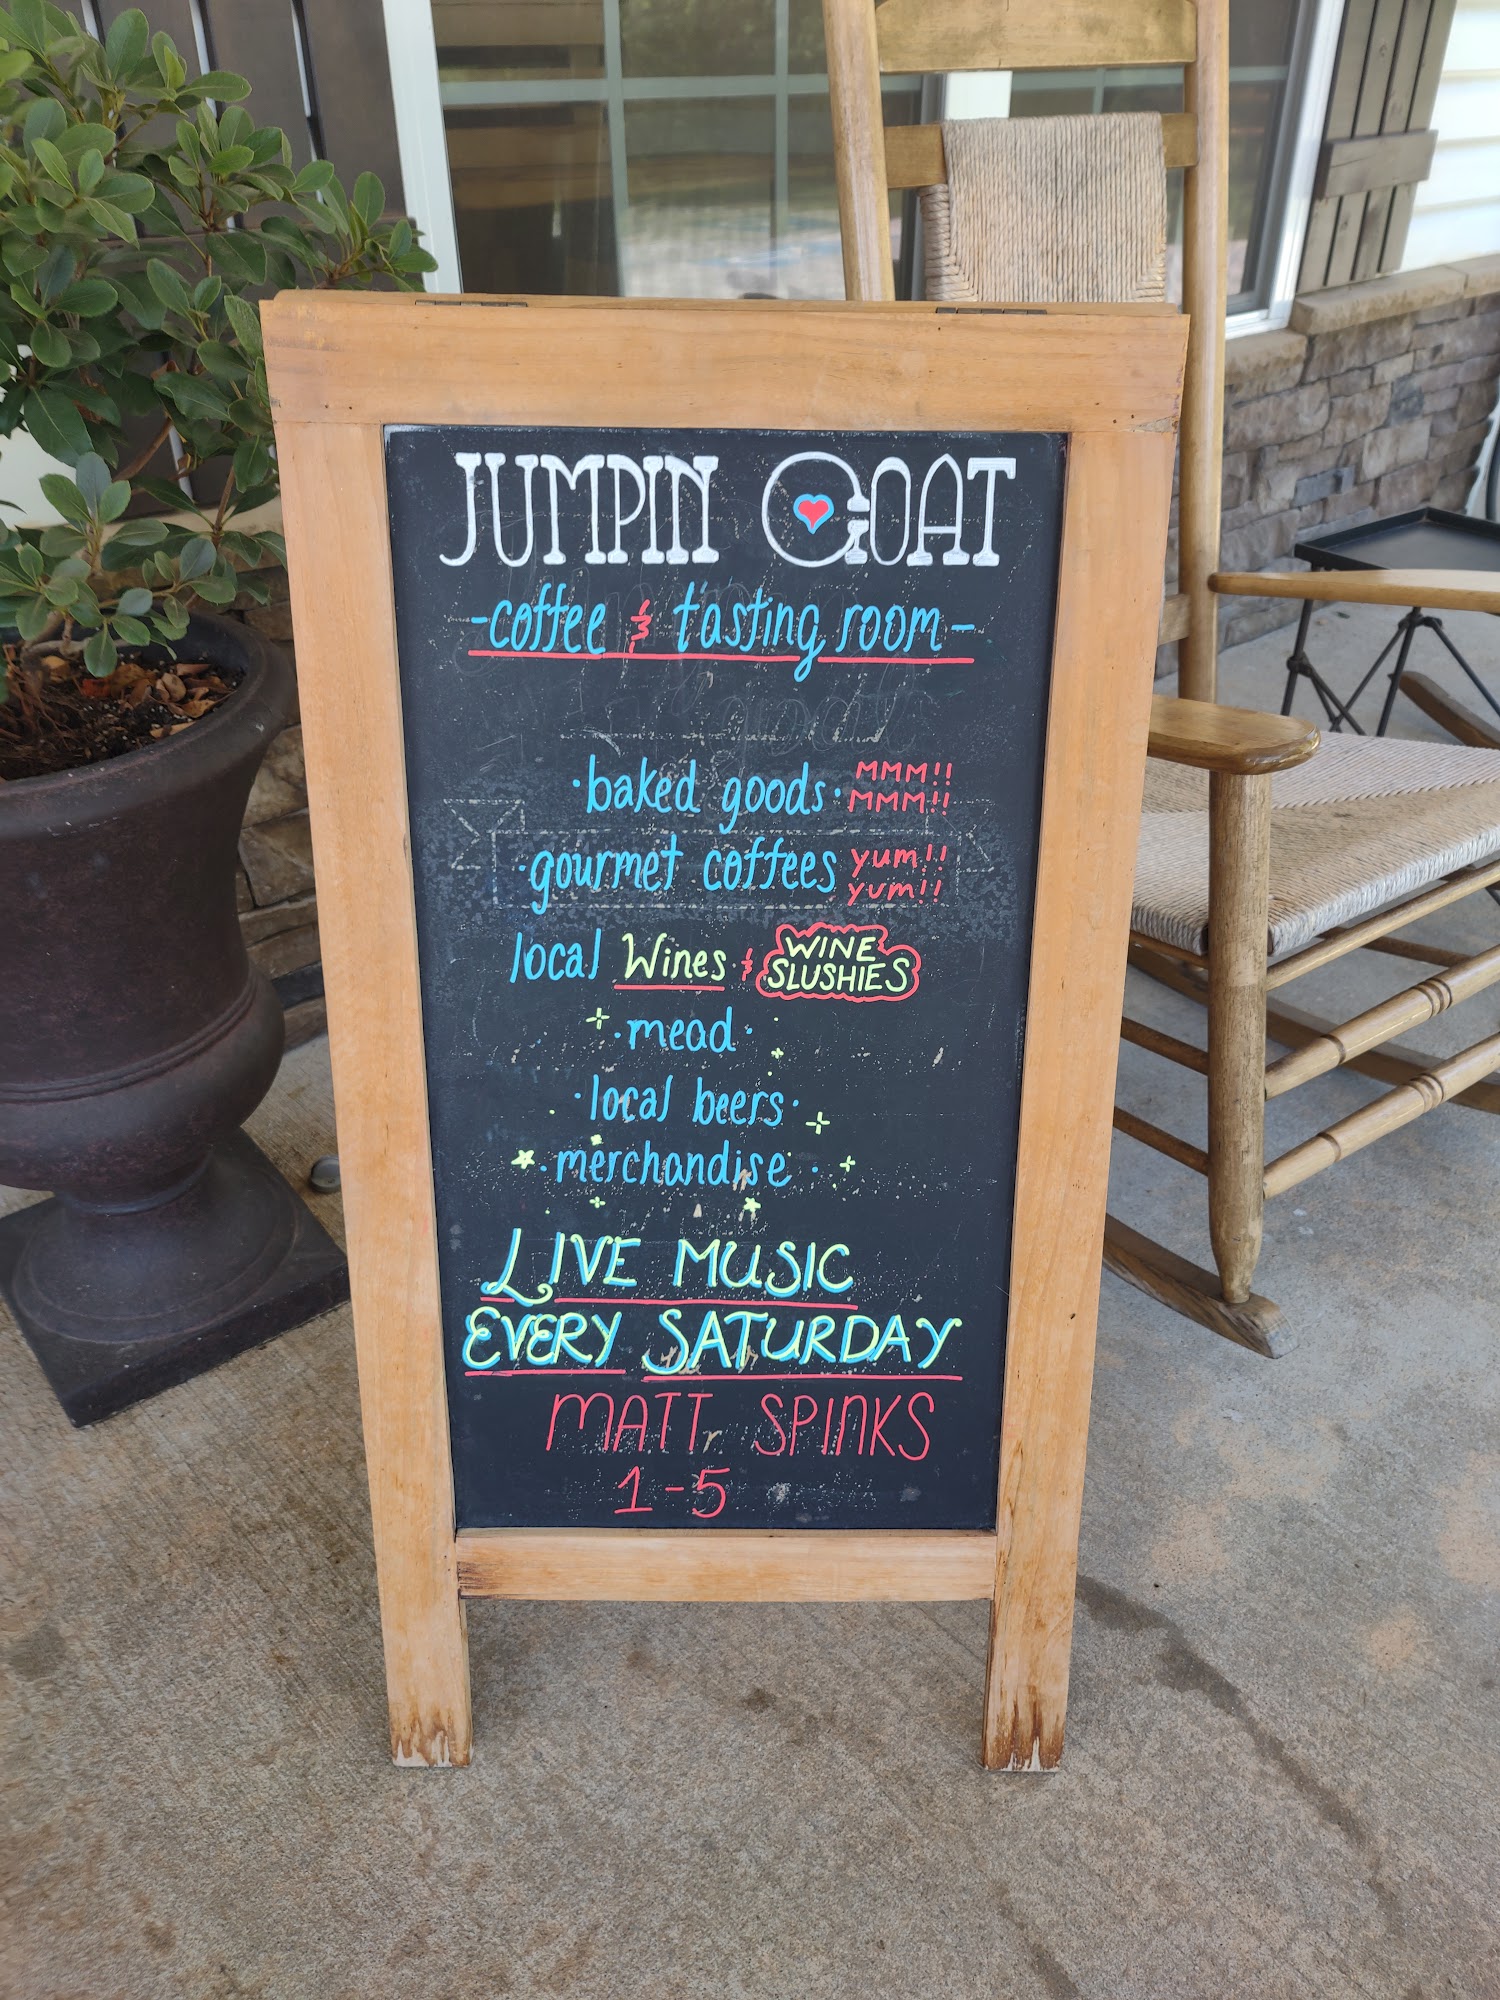 JUMPIN GOAT
-coffee & tasting room-
·baked goods· MMM!! MMM!!
·gourmet coffees yum!! yum!!
local Wines & WINE SLUSHIES
·mead·
·local beers·
·merchandise·
LIVE MUSIC
EVERY SATURDAY
MATT SPINKS
1-5